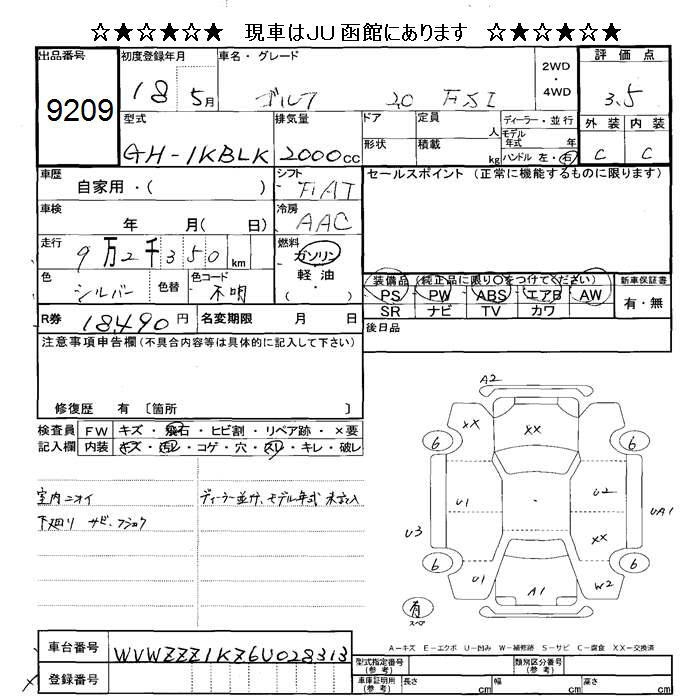 ☆★☆★☆★ 現車はJU函館にあります ☆★☆★☆★
出品番号
9209
初度登録年月
18 5月
車名・グレード
ゴルフ 2.0 FSI
2WD
・
4WD
評価点
3.5
外装 内装
C C
型式
GH-1KBLK
排気量
2000cc
ドア 定員 人
形状 積載 kg
ディーラー・並行
モデル年式 年
ハンドル 左・右
車歴
自家用・( )
シフト
FIAT
セールスポイント (正常に機能するものに限ります)
車検
年 月( 日)
冷房
AAC
走行
9万2千350km
燃料
ガソリン
軽油
( )
色
シルバー
色替
色コード
不明
装備品(純正品に限り○をつけてください)
PS PW ABS エアB AW
SR ナビ TV カワ
新車保証書
有・無
R券 18,490円 名変期限 月 日
後日品
注意事項申告欄(不具合内容等は具体的に記入して下さい)
修復歴 有 〔箇所 〕
検査員 FW キズ・飛石・ヒビ割・リペア跡・×要
記入欄 内装 キズ・汚レ・コゲ・穴・スレ・キレ・破レ
室内ニオイ
下廻り サビ・フショク
ディーラー並行、モデル年式 未記入
A2
XX XX
6 6
U1 U2
U3 UA1
XX
6 6
U1 A1 W2
有
スペア
A-キズ E-エクボ U-凹み W-補修跡 S-サビ C-腐食 XX-交換済
車台番号 WVWZZZ1KZ6U028313
登録番号
型式指定番号(参考) 類別区分番号(参考)
車庫証明用(参考) 長さ cm 幅 cm 高さ cm